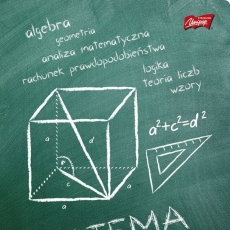 Unipap
algebra
geometria
analiza matematyczna
rachunek prawdopodobieństwa
logika
teoria liczb
wzory
a²+c²=d²
a
d
c
a
a
TEMA